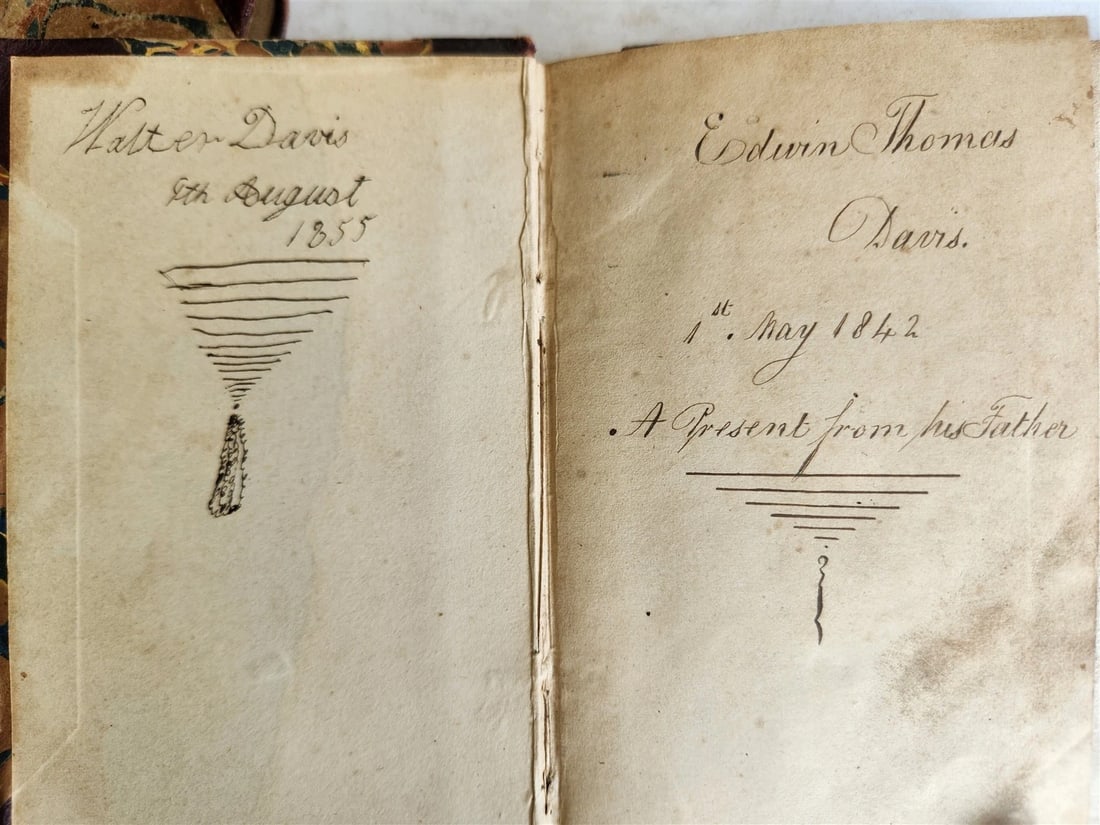 Walter Davis
August
1855
Edwin Thomas
Davis.
1st. May 1842
A Present from his Father